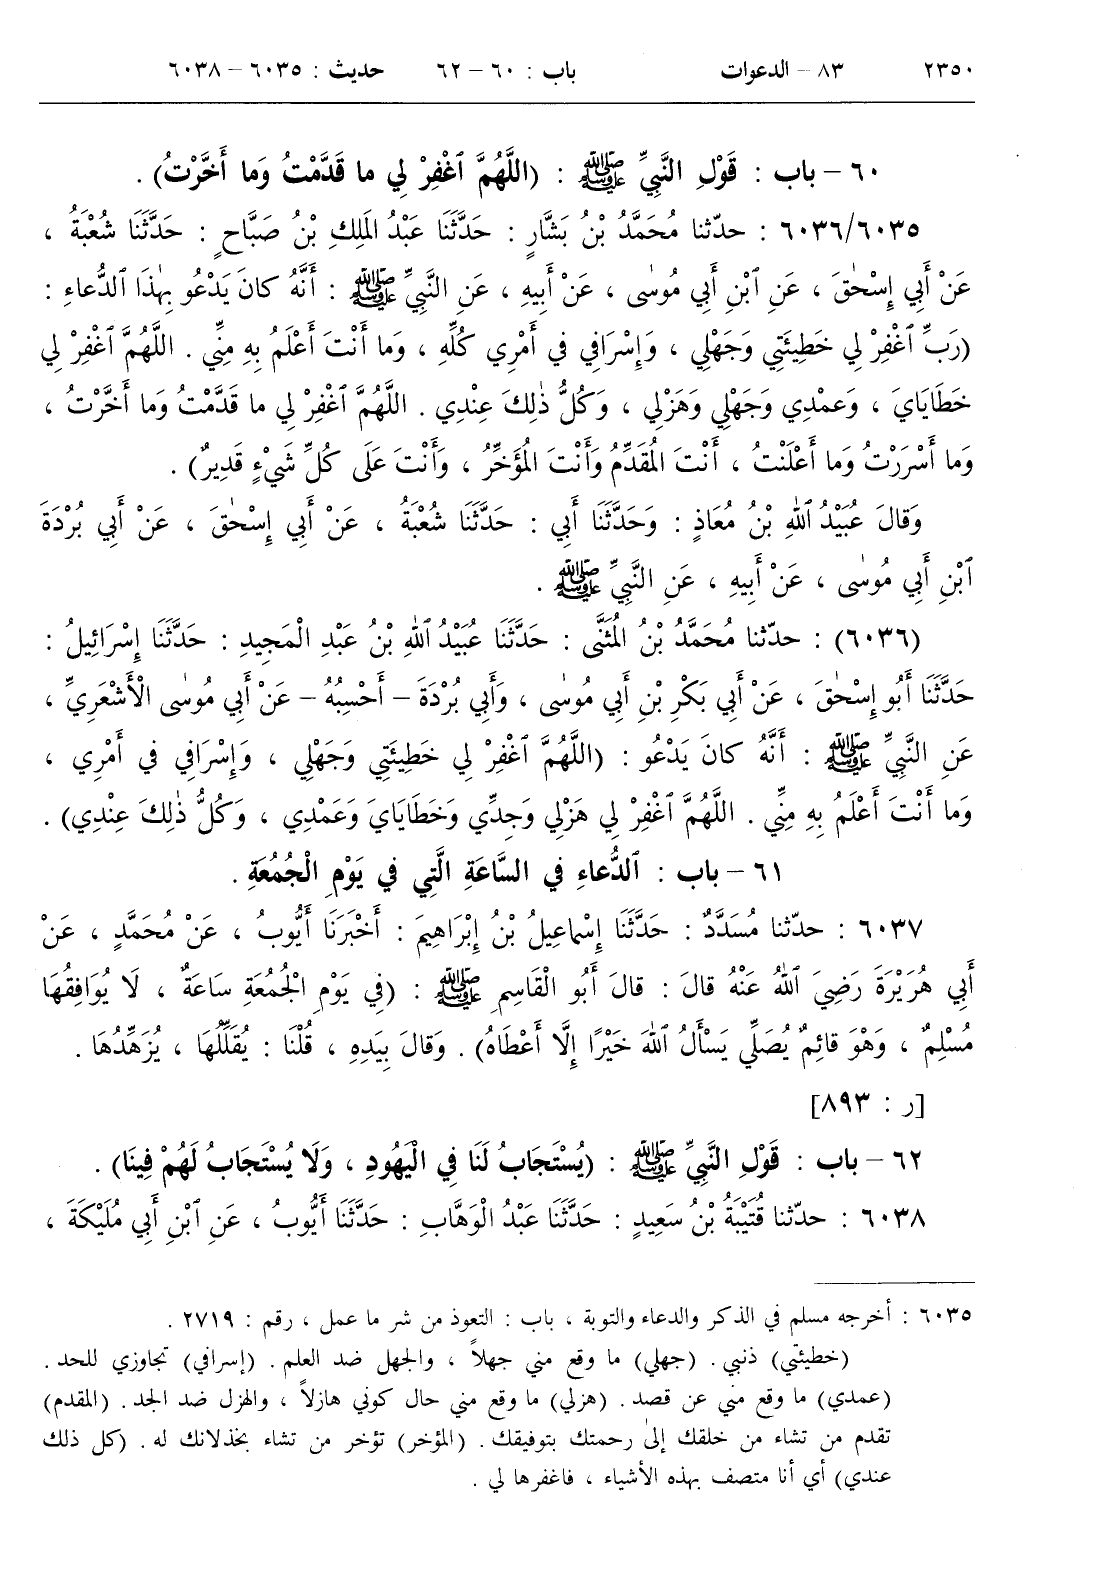 ٢٣٥٠ ٨٣ – الدعوات باب : ٦٠ – ٦٢ حديث : ٦٠٣٥ – ٦٠٣٨
٦٠ – باب : قَوْلِ النَّبِيِّ ﷺ : (اللَّهُمَّ ٱغْفِرْ لِي ما قَدَّمْتُ وَما أَخَّرْتُ) .
٦٠٣٦/٦٠٣٥ : حدّثنا مُحَمَّدُ بْنُ بَشَّارٍ : حَدَّثَنَا عَبْدُ المَلِكِ بْنُ صَبَّاحٍ : حَدَّثَنَا شُعْبَةُ ،
عَنْ أَبِي إِسْحٰقَ ، عَنِ ٱبْنِ أَبِي مُوسٰى ، عَنْ أَبِيهِ ، عَنِ النَّبِيِّ ﷺ : أَنَّهُ كانَ يَدْعُو بِهٰذَا ٱلدُّعاءِ :
(رَبِّ ٱغْفِرْ لِي خَطِيئَتِي وَجَهْلِي ، وَإِسْرَافِي فِي أَمْرِي كُلِّهِ ، وَما أَنْتَ أَعْلَمُ بِهِ مِنِّي . اللَّهُمَّ ٱغْفِرْ لِي
خَطَايَايَ ، وَعَمْدِي وَجَهْلِي وَهَزْلِي ، وَكُلُّ ذٰلِكَ عِنْدِي . اللَّهُمَّ ٱغْفِرْ لِي ما قَدَّمْتُ وَما أَخَّرْتُ ،
وَما أَسْرَرْتُ وَما أَعْلَنْتُ ، أَنْتَ المُقَدِّمُ وَأَنْتَ المُؤَخِّرُ ، وَأَنْتَ عَلَى كُلِّ شَيْءٍ قَدِيرٌ) .
وَقالَ عُبَيْدُ ٱللهِ بْنُ مُعَاذٍ : وَحَدَّثَنَا أَبِي : حَدَّثَنَا شُعْبَةُ ، عَنْ أَبِي إِسْحٰقَ ، عَنْ أَبِي بُرْدَةَ
ٱبْنِ أَبِي مُوسٰى ، عَنْ أَبِيهِ ، عَنِ النَّبِيِّ ﷺ .
(٦٠٣٦) : حدّثنا مُحَمَّدُ بْنُ المُثَنَّى : حَدَّثَنَا عُبَيْدُ ٱللهِ بْنُ عَبْدِ الْمَجِيدِ : حَدَّثَنَا إِسْرَائِيلُ :
حَدَّثَنَا أَبُو إِسْحٰقَ ، عَنْ أَبِي بَكْرِ بْنِ أَبِي مُوسٰى ، وَأَبِي بُرْدَةَ – أَحْسِبُهُ – عَنْ أَبِي مُوسٰى الْأَشْعَرِيِّ ،
عَنِ النَّبِيِّ ﷺ : أَنَّهُ كانَ يَدْعُو : (اللَّهُمَّ ٱغْفِرْ لِي خَطِيئَتِي وَجَهْلِي ، وَإِسْرَافِي فِي أَمْرِي ،
وَما أَنْتَ أَعْلَمُ بِهِ مِنِّي . اللَّهُمَّ ٱغْفِرْ لِي هَزْلِي وَجِدِّي وَخَطَايَايَ وَعَمْدِي ، وَكُلُّ ذٰلِكَ عِنْدِي) .
٦١ – باب : ٱلدُّعاءِ فِي السَّاعَةِ الَّتِي فِي يَوْمِ الْجُمُعَةِ .
٦٠٣٧ : حدّثنا مُسَدَّدٌ : حَدَّثَنَا إِسْماعِيلُ بْنُ إِبْرَاهِيمَ : أَخْبَرَنَا أَيُّوبُ ، عَنْ مُحَمَّدٍ ، عَنْ
أَبِي هُرَيْرَةَ رَضِيَ ٱللهُ عَنْهُ قالَ : قالَ أَبُو الْقَاسِمِ ﷺ : (فِي يَوْمِ الجُمُعَةِ سَاعَةٌ ، لَا يُوَافِقُهَا
مُسْلِمٌ ، وَهْوَ قائِمٌ يُصَلِّي يَسْأَلُ ٱللهَ خَيْرًا إِلَّا أَعْطَاهُ) . وَقالَ بِيَدِهِ ، قُلْنَا : يُقَلِّلُهَا ، يُزَهِّدُهَا .
[ر : ٨٩٣]
٦٢ – باب : قَوْلِ النَّبِيِّ ﷺ : (يُسْتَجَابُ لَنَا فِي الْيَهُودِ ، وَلَا يُسْتَجَابُ لَهُمْ فِينَا) .
٦٠٣٨ : حدّثنا قُتَيْبَةُ بْنُ سَعِيدٍ : حَدَّثَنَا عَبْدُ الْوَهَّابِ : حَدَّثَنَا أَيُّوبُ ، عَنِ ٱبْنِ أَبِي مُلَيْكَةَ ،
٦٠٣٥ : أخرجه مسلم في الذكر والدعاء والتوبة ، باب : التعوذ من شر ما عمل ، رقم : ٢٧١٩ .
(خطيئتي) ذنبي . (جهلي) ما وقع مني جهلاً ، والجهل ضد العلم . (إسرافي) تجاوزي للحد .
(عمدي) ما وقع مني عن قصد . (هزلي) ما وقع مني حال كوني هازلاً ، والهزل ضد الجد . (المقدم)
تقدم من تشاء من خلقك إلى رحمتك بتوفيقك . (المؤخر) تؤخر من تشاء بخذلانك له . (كل ذلك
عندي) أي أنا متصف بهذه الأشياء ، فاغفرها لي .